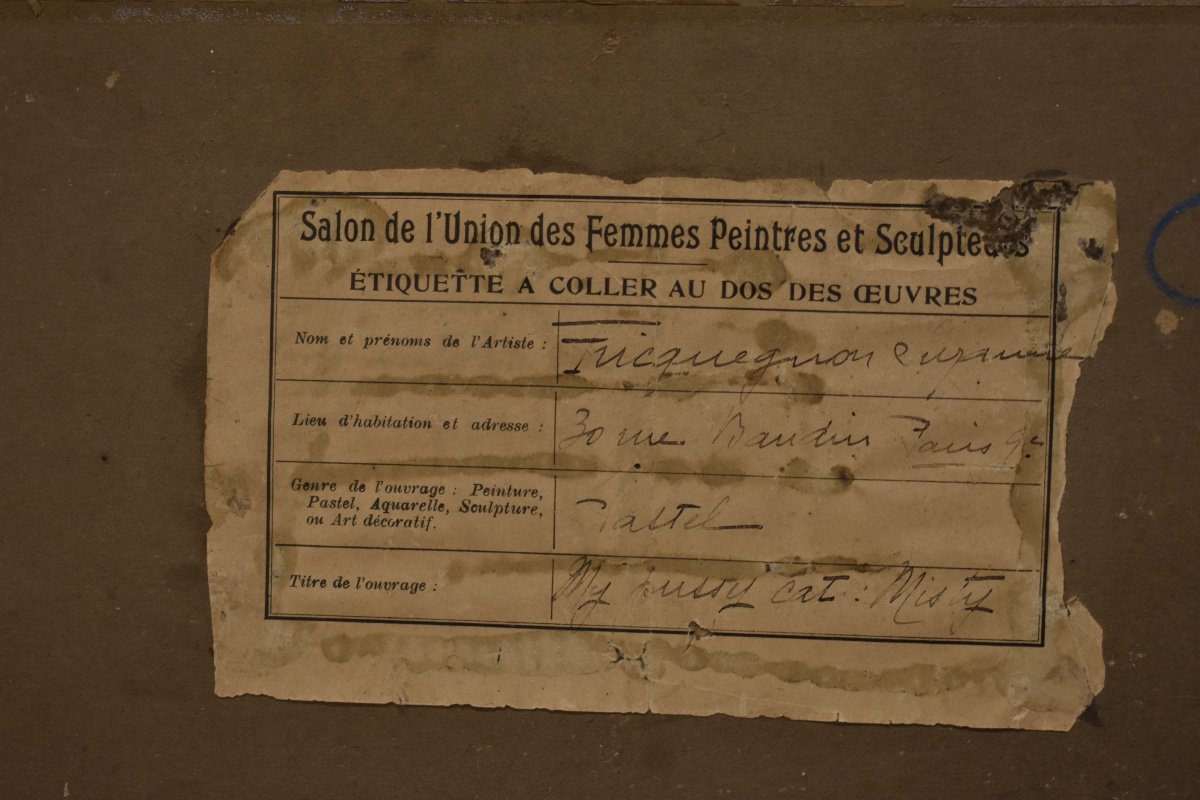 Salon de l'Union des Femmes Peintres et Sculpteurs
ÉTIQUETTE A COLLER AU DOS DES ŒUVRES
Nom et prénoms de l'Artiste : Tricquegnon Suzanne
Lieu d'habitation et adresse : 30 rue Baudin Paris 9e
Genre de l'ouvrage : Peinture,
Pastel, Aquarelle, Sculpture,
ou Art décoratif. Pastel
Titre de l'ouvrage : My pussy cat : Misty